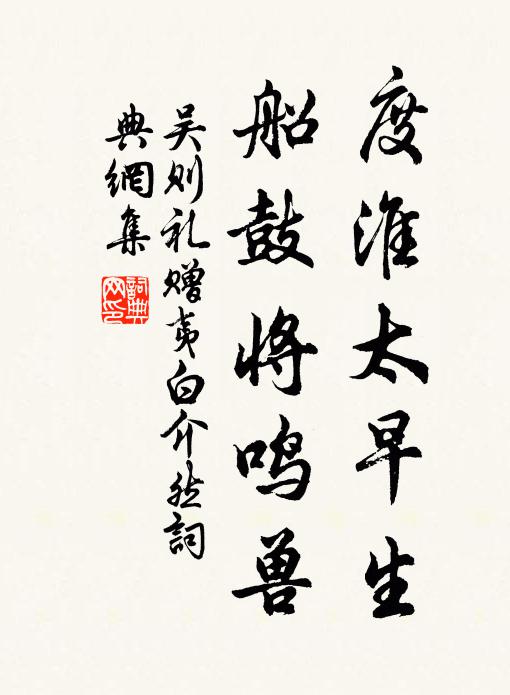 度淮太早生
船鼓将鸣兽
吴则礼赠夷白介然詞
典網集
詞典网印